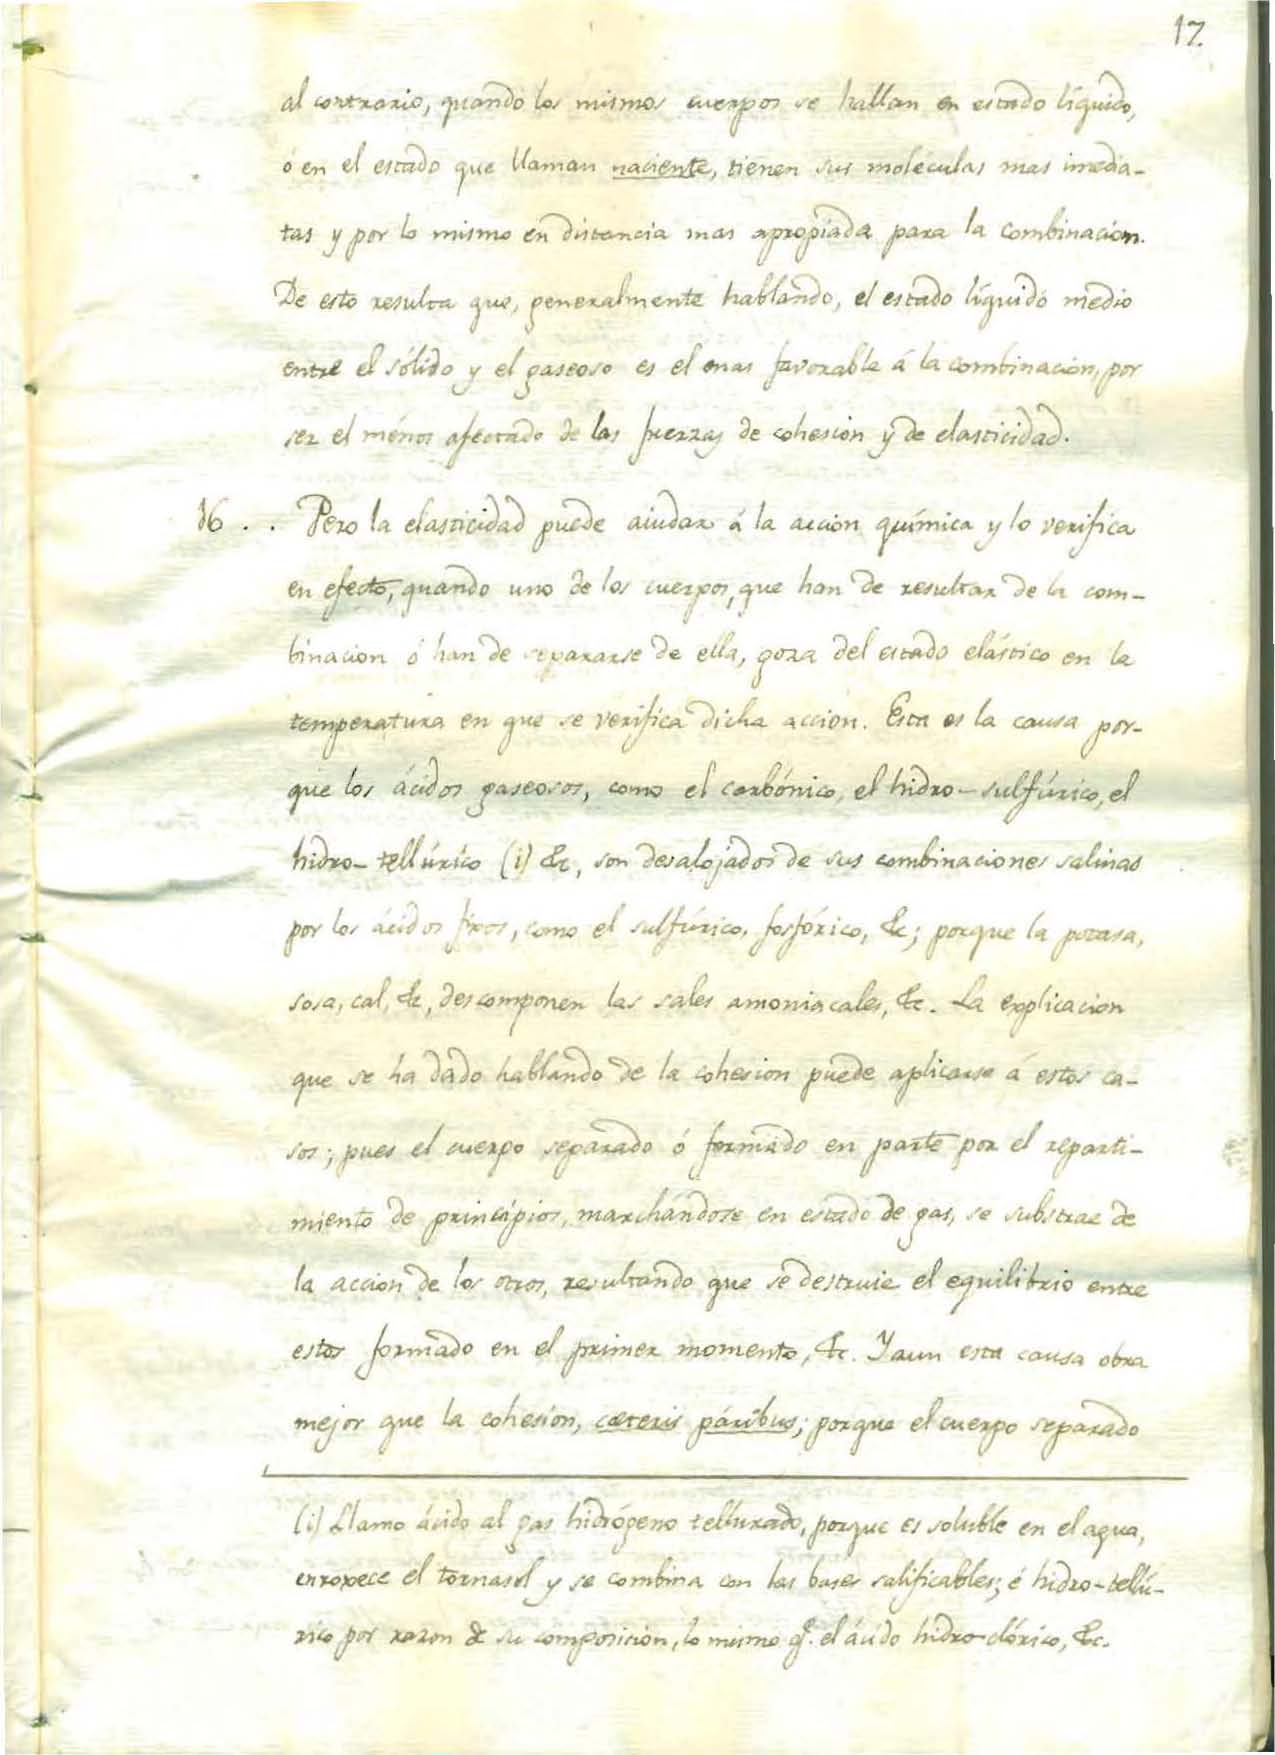 17.
al contrario, quando los mismos cuerpos se hallan en estado líquido,
ó en el estado que llaman naciente, tienen sus moléculas mas imedia-
tas y por lo mismo en distancia mas apropiada para la combinacion.
De esto resulta que, generalmente hablando, el estado líquido medio
entre el sólido y el gaseoso es el mas favorable á la combinacion, por
ser el ménos afectado de las fuerzas de cohesion y de elasticidad.
16 . . Pero la elasticidad puede aiudar á la accion química y lo verifica
en efecto, quando uno de los cuerpos, que han de resultar de la com-
binacion ó han de separarse de ella, goza del estado elástico en la
temperatura en que se verifica dicha accion. Esta es la causa por-
que los ácidos gaseosos, como el carbónico, el hidro-sulfúrico, el
hidro-tellúrico (i) &c, son desalojados de sus combinaciones salinas
por los ácidos fixos, como el sulfúrico, fosfórico, &c; porque la potasa,
sosa, cal, &c, descomponen las sales amoniacales, &c. La explicacion
que se ha dado hablando de la cohesion puede aplicarse á estos ca-
sos; pues el cuerpo separado ó formado en parte por el reparti-
miento de principios, marchándose en estado de gas, se substrae de
la accion de los otros, resultando que se destruie el equilibrio entre
estos formado en el primer momento, &c. Y aun esta causa obra
mejor que la cohesion, cæteris páribus; porque el cuerpo separado
(i) Llamo ácido al gas hidrógeno tellurado, porque es soluble en el agua,
enroxece el tornasol y se combina con las bases salificables; é hidro-tellú-
rico por razon de su composicion, lo mismo q.e el ácido hidro-clórico, &c.